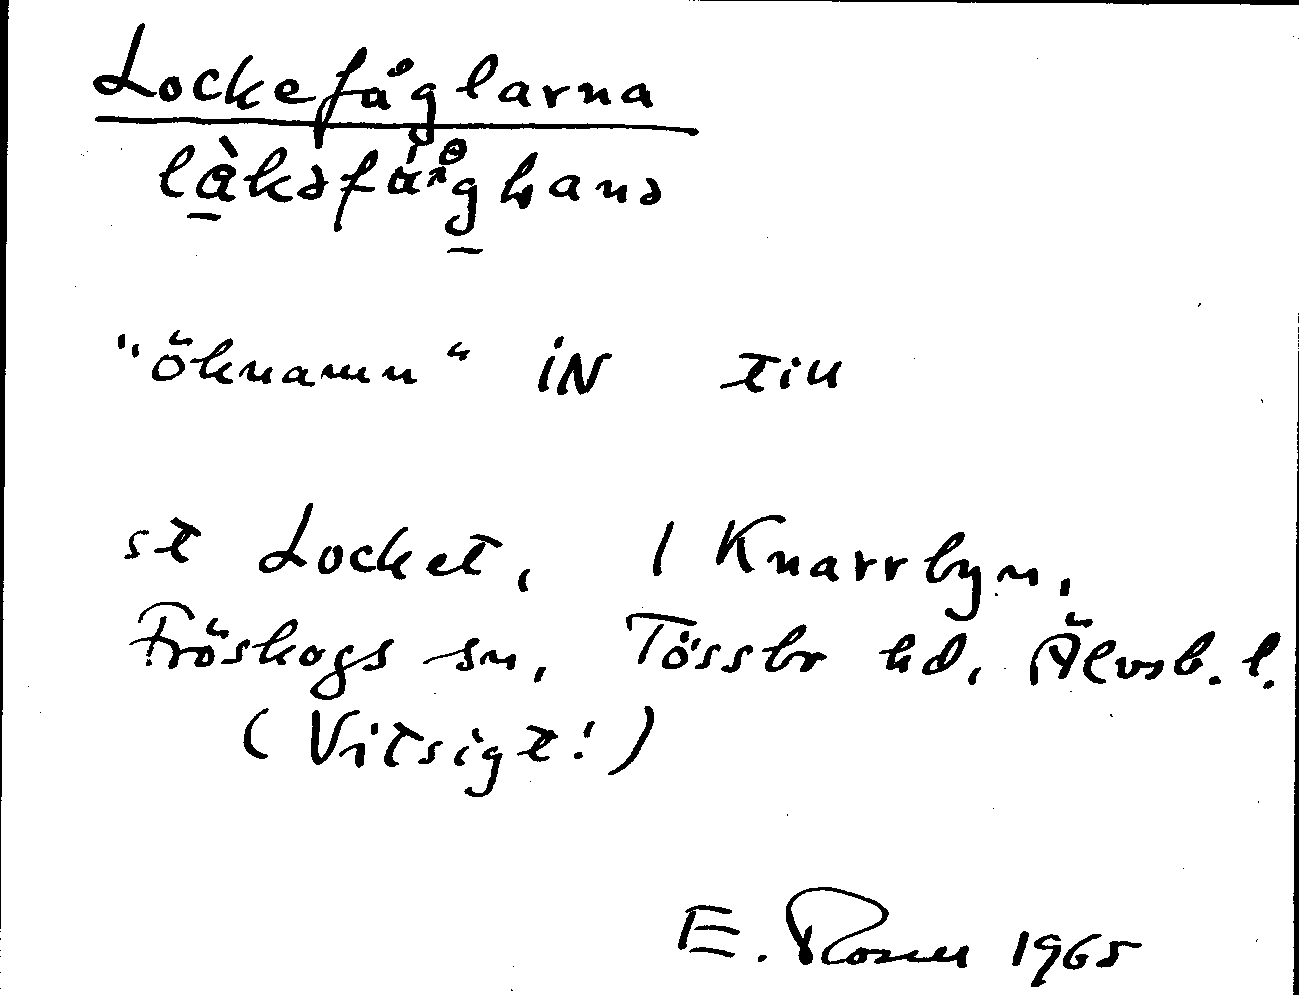 Lockefåglarna
"öknamn" iN till
st Locket, 1 Knarrbyn,
Fröskogs sn, Tössbo hd, Älvsb. l.
(Vitsigt!)
E. Rosen 1965